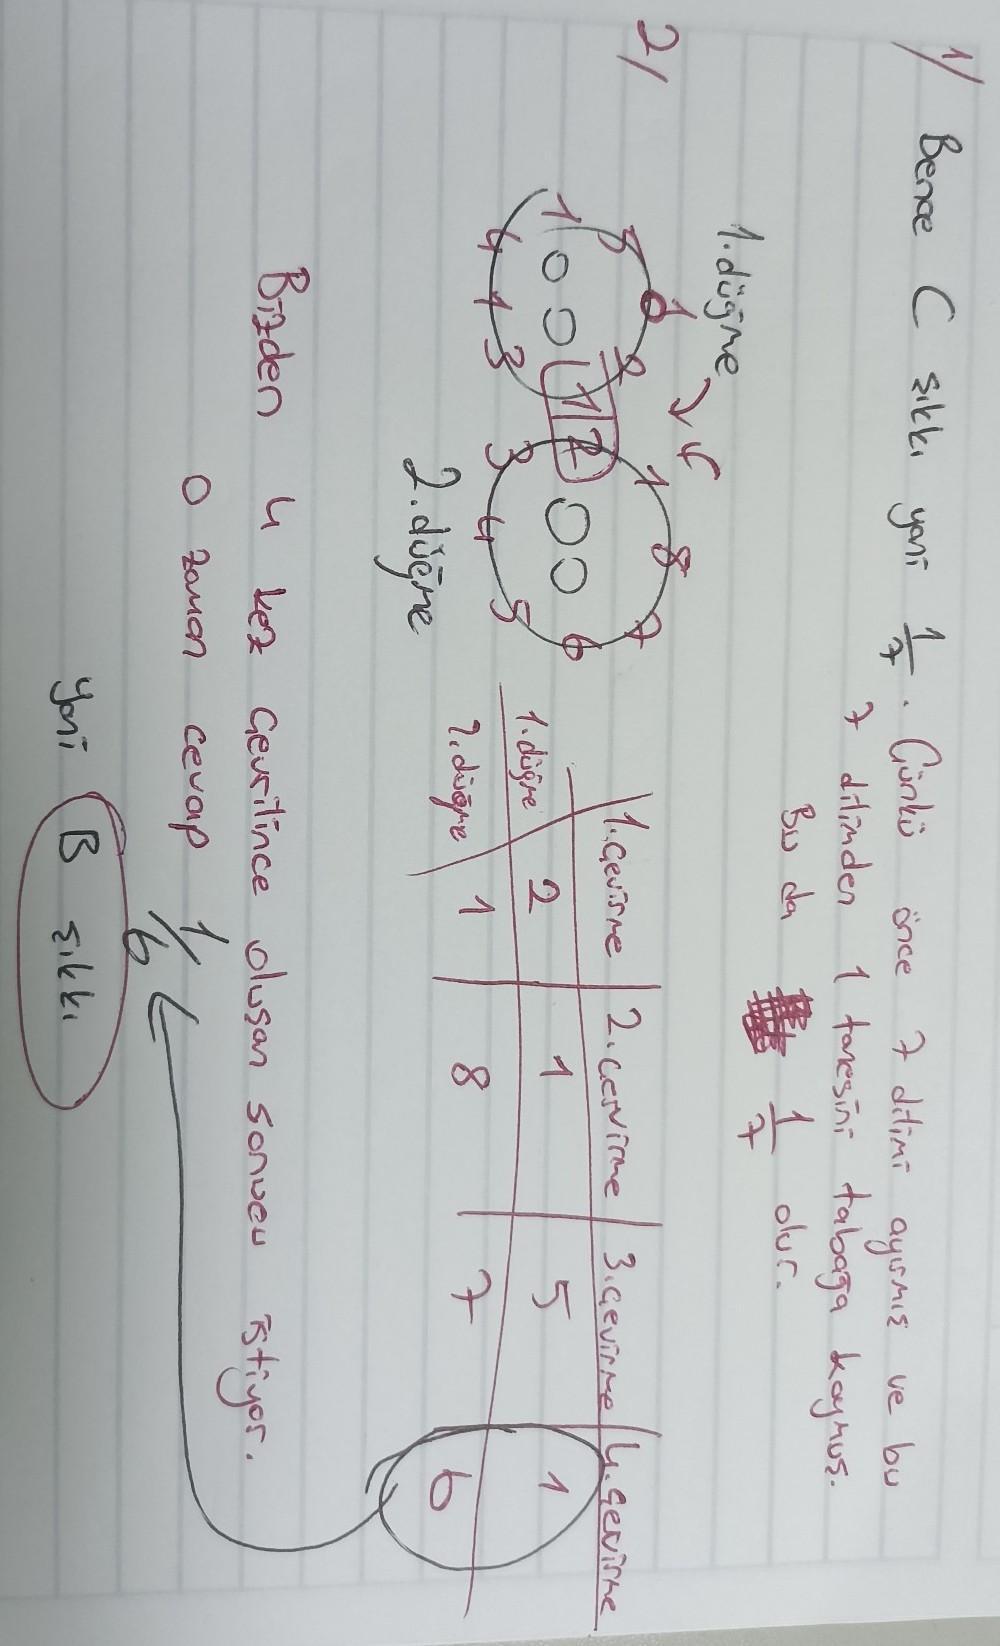 1) Bence C şıkkı yani 1/7. Çünkü önce 7 dilimi ayırmış ve bu
7 dilimden 1 tanesini tabağa koymuş.
Bu da 1/7 olur.
2)
1. düğme
1 5 1 2 1 3 1 4
2 1 8 7 6 5 4 3
2. düğme
1. çevirme 2. çevirme 3. çevirme 4. çevirme
1. düğme 2 1 5 1
2. düğme 1 8 7 6
Bizden 4 kez çevrilince oluşan sonucu istiyor.
O zaman cevap 1/6
yani B şıkkı